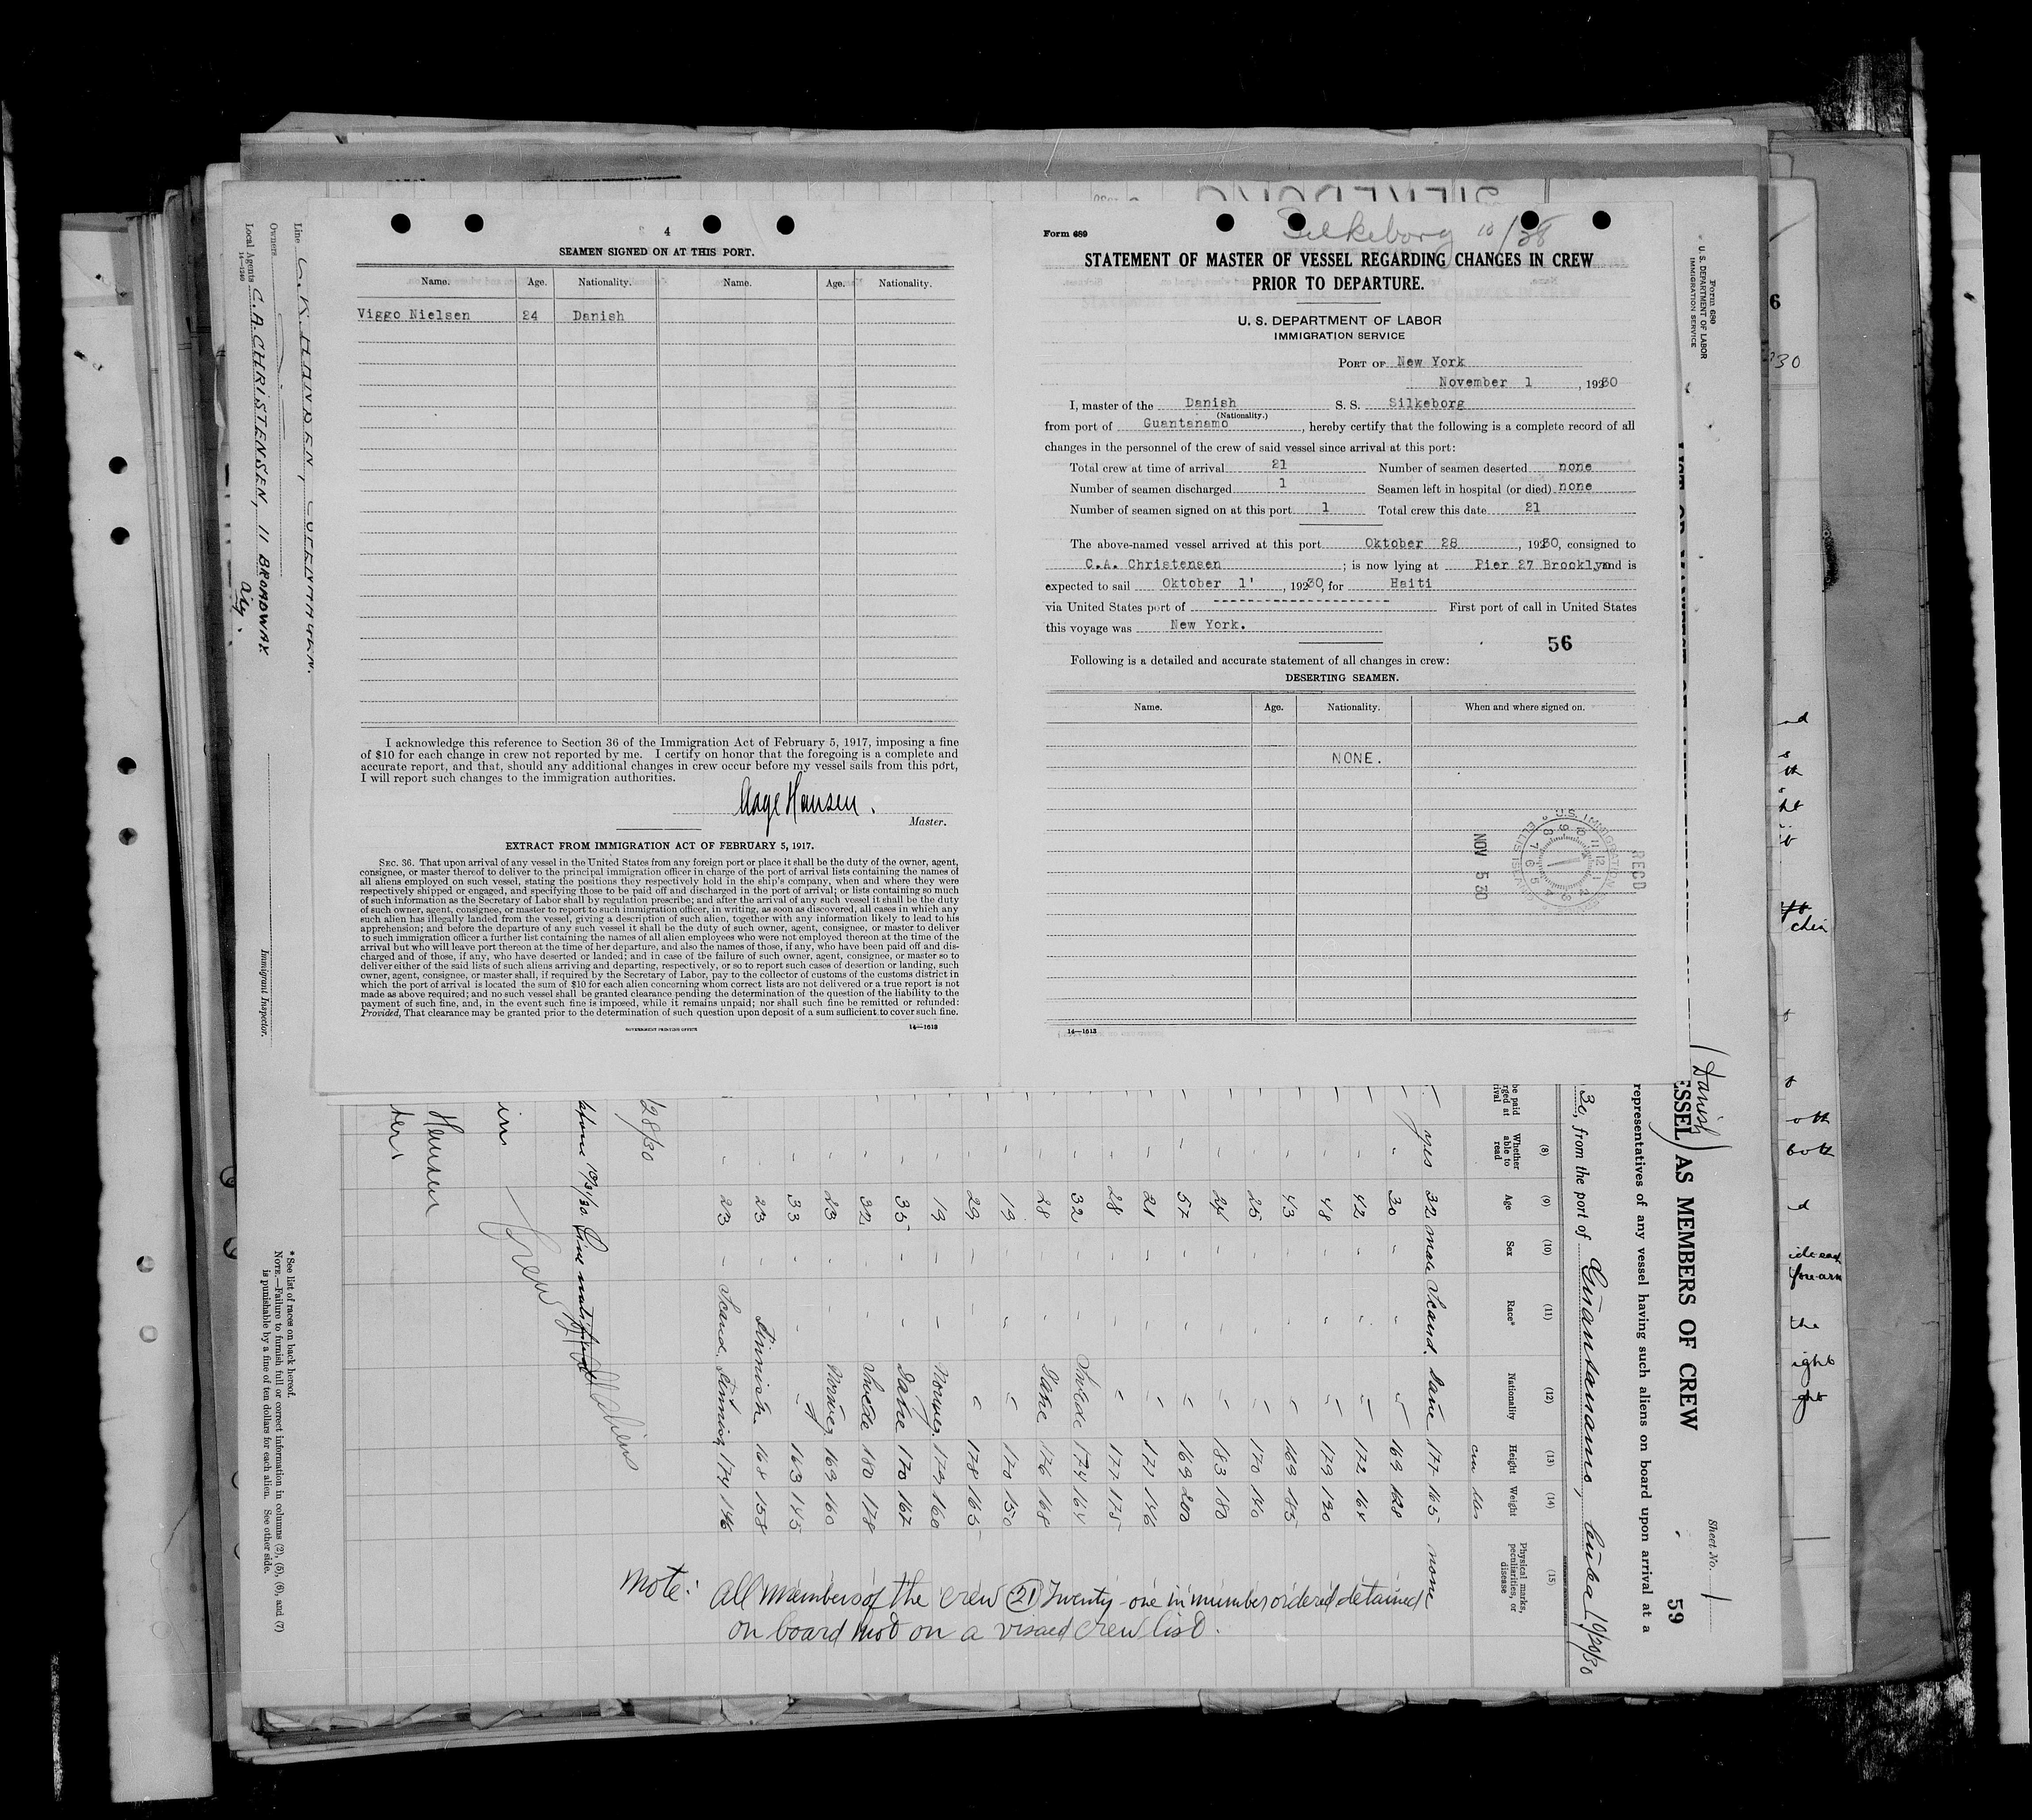 4
SEAMEN SIGNED ON AT THIS PORT.
Name. Age. Nationality. Name. Age. Nationality.
Viggo Nielsen 24 Danish
I acknowledge this reference to Section 36 of the Immigration Act of February 5, 1917, imposing a fine
of $10 for each change in crew not reported by me. I certify on honor that the foregoing is a complete and
accurate report, and that, should any additional changes in crew occur before my vessel sails from this port,
I will report such changes to the immigration authorities.
Aage Hansen.
Master.
EXTRACT FROM IMMIGRATION ACT OF FEBRUARY 5, 1917.
SEC. 36. That upon arrival of any vessel in the United States from any foreign port or place it shall be the duty of the owner, agent,
consignee, or master thereof to deliver to the principal immigration officer in charge of the port of arrival lists containing the names of
all aliens employed on such vessel, stating the positions they respectively hold in the ship's company, when and where they were
respectively shipped or engaged, and specifying those to be paid off and discharged in the port of arrival; or lists containing so much
of such information as the Secretary of Labor shall by regulation prescribe; and after the arrival of any such vessel it shall be the duty
of such owner, agent, consignee, or master to report to such immigration officer, in writing, as soon as discovered, all cases in which any
such alien has illegally landed from the vessel, giving a description of such alien, together with any information likely to lead to his
apprehension; and before the departure of any such vessel it shall be the duty of such owner, agent, consignee, or master to deliver
to such immigration officer a further list containing the names of all alien employees who were not employed thereon at the time of the
arrival but who will leave port thereon at the time of her departure, and also the names of those, if any, who have been paid off and dis-
charged and of those, if any, who have deserted or landed; and in case of the failure of such owner, agent, consignee, or master so to
deliver either of the said lists of such aliens arriving and departing, respectively, or so to report such cases of desertion or landing, such
owner, agent, consignee, or master shall, if required by the Secretary of Labor, pay to the collector of customs of the customs district in
which the port of arrival is located the sum of $10 for each alien concerning whom correct lists are not delivered or a true report is not
made as above required; and no such vessel shall be granted clearance pending the determination of the question of the liability to the
payment of such fine, and, in the event such fine is imposed, while it remains unpaid; nor shall such fine be remitted or refunded:
Provided, That clearance may be granted prior to the determination of such question upon deposit of a sum sufficient to cover such fine.
GOVERNMENT PRINTING OFFICE 14—1613
Form 689
Silkeborg 10/28
STATEMENT OF MASTER OF VESSEL REGARDING CHANGES IN CREW
PRIOR TO DEPARTURE.
U. S. DEPARTMENT OF LABOR
IMMIGRATION SERVICE
PORT OF New York
November 1, 1930
I, master of the Danish S. S. Silkeborg
(Nationality.)
from port of Guantanamo, hereby certify that the following is a complete record of all
changes in the personnel of the crew of said vessel since arrival at this port:
Total crew at time of arrival 21 Number of seamen deserted none
Number of seamen discharged 1 Seamen left in hospital (or died) none
Number of seamen signed on at this port 1 Total crew this date 21
The above-named vessel arrived at this port Oktober 28, 1930, consigned to
C.A. Christensen; is now lying at Pier 27 Brooklyn and is
expected to sail Oktober 1', 1930, for Haiti
via United States port of First port of call in United States
this voyage was New York.
56
Following is a detailed and accurate statement of all changes in crew:
DESERTING SEAMEN.
Name. Age. Nationality. When and where signed on.
NONE.
REC'D
U.S. IMMIGRATION
ELLIS ISLAND
NOV 5 30
14—1613
Line
Owners
Local Agents C.A. CHRISTENSEN, 11 BROADWAY
City.
14—1240
Immigrant Inspector.
* See list of races on back hereof.
NOTE.—Failure to furnish full or correct information in columns (2), (5), (6), and (7)
is punishable by a fine of ten dollars for each alien. See other side.
Form 680
U. S. DEPARTMENT OF LABOR
IMMIGRATION SERVICE
Danish
Sheet No. 1
VESSEL) AS MEMBERS OF CREW 59
representatives of any vessel having such aliens on board upon arrival at a
30, from the port of Guantanamo, Cuba 10/20/30
(8) (9) (10) (11) (12) (13) (14) (15)
Whether able to read Age Sex Race* Nationality Height Weight Physical marks, peculiarities, or disease
cm lbs
yes 32 male Scand. Dane 177 165 none
" 30 " " " 169 128
42 172 164
48 179 190
43 169 185
25 170 140
24 183 180
57 169 200
21 171 146
28 177 175
32 Swede 174 164
28 Dane 176 168
19 170 150
29 178 165
19 Norweg. 179 160
35 Dane 170 167
32 Swede 180 178
23 Norweg 169 160
33 163 145
23 Finnish 168 158
23 Scand. Finnish 174 146
Note: All members of the crew (21) Twenty-one in number ordered detained
on board not on a visaed crew list.
Hansen